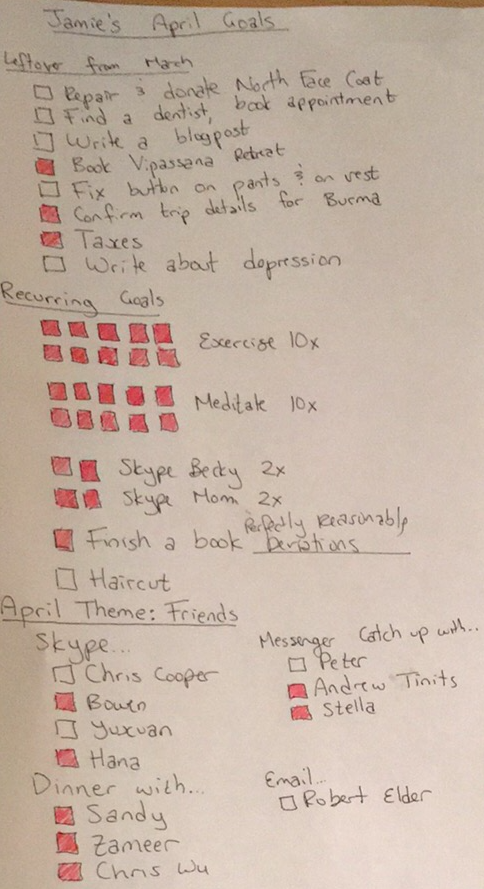 Jamie's April Goals
Leftover from March
Repair & donate North Face Coat
Find a dentist, book appointment
Write a blogpost
Book Vipassana Retreat
Fix button on pants & on vest
Confirm trip details for Burma
Taxes
Write about depression
Recurring Goals
Exercise 10x
Meditate 10x
Skype Becky 2x
Skype Mom 2x
Perfectly Reasonable
Finish a book Deviations
Haircut
April Theme: Friends
Skype...
Chris Cooper
Bowen
Yuxuan
Hana
Dinner with...
Sandy
Zameer
Chris Wu
Messenger Catch up with...
Peter
Andrew Tinits
Stella
Email...
Robert Elder